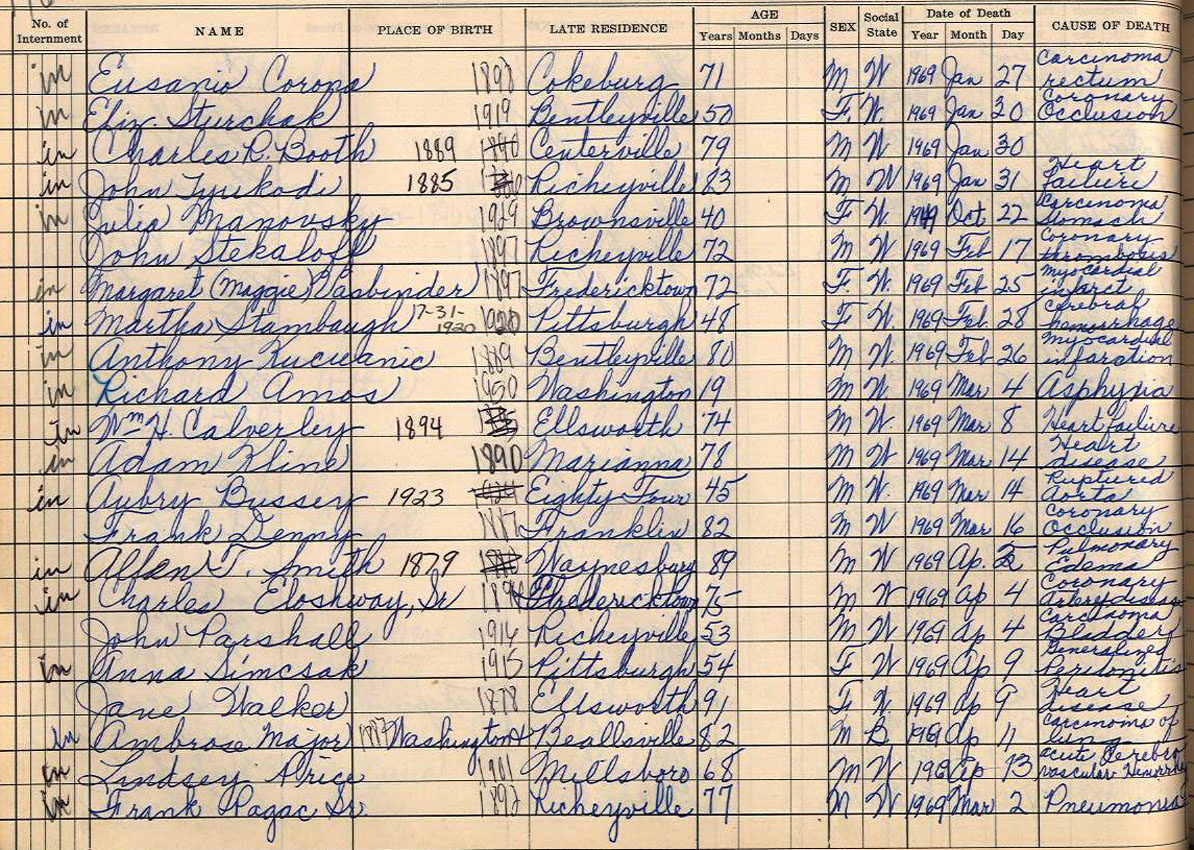 No. of Internment NAME PLACE OF BIRTH LATE RESIDENCE AGE Years Months Days SEX Social State Date of Death Year Month Day CAUSE OF DEATH
in Eusanio Corona 1898 Cokeburg 71 M W 1969 Jan 27 Carcinoma rectum
in Eliz Sturchak 1919 Bentleyville 50 F. W. 1969 Jan 30 Coronary Occlusion
in Charles R. Booth 1889 Centerville 79 M W 1969 Jan 30
in John Tyukodi 1885 Richeyville 83 M W 1969 Jan 31 Heart Failure
in Julia Manovsky 1929 Brownsville 40 F W. 1969 Oct 22 Carcinoma Stomach
John Stekaloff 1897 Richeyville 72 M W 1969 Feb 17 Coronary thrombosis
in Margaret (Maggie) Vasbinder 1897 Fredericktown 72 F. W. 1969 Feb 25 myocardial infarct
in Martha Stambaugh 7-31-1920 1920 Pittsburgh 48 F W. 1969 Feb. 28 Cerebral hemorrhage
in Anthony Kucwanic 1889 Bentleyville 80 M W. 1969 Feb 26 myocardial infarction
in Richard Amos 1950 Washington 19 M W 1969 Mar 4 Asphyxia
in Wm H. Calverley 1894 Ellsworth 74 M W. 1969 Mar 8 Heart failure
in Adam Kline 1890 Marianna 78 M W 1969 Mar 14 Heart disease
in Aubry Bussey 1923 Eighty Four 45 M W. 1969 Mar 14 Ruptured Aorta
Frank Denny 1887 Franklin 82 M W 1969 Mar 16 Coronary Occlusion
in T. Smith 1879 Waynesburg 89 M W 1969 Ap. 2 Pulmonary Edema
in Charles Eloshway, Sr Fredericktown 75 M W 1969 Ap 4 Coronary Artery disease
John Parshall 1916 Richeyville 53 M W 1969 Ap 4 Carcinoma Bladder
in Anna Simcsak 1915 Pittsburgh 54 F W 1969 Ap 9 Generalized Peridonitis
Jane Walker 1878 Ellsworth 91 F W 1969 Ap 9 Heart disease
in Ambrose Major 1887 Washington Beallsville 82 M B 1969 Ap 11 Carcinoma of lung
in Lindsey Price 1901 Millsboro 68 M W 1969 Ap 13 acute Cerebro vascular Hemorrhage
in Frank Pagac Sr. 1892 Richeyville 77 M W 1969 Mar 2 Pneumonia